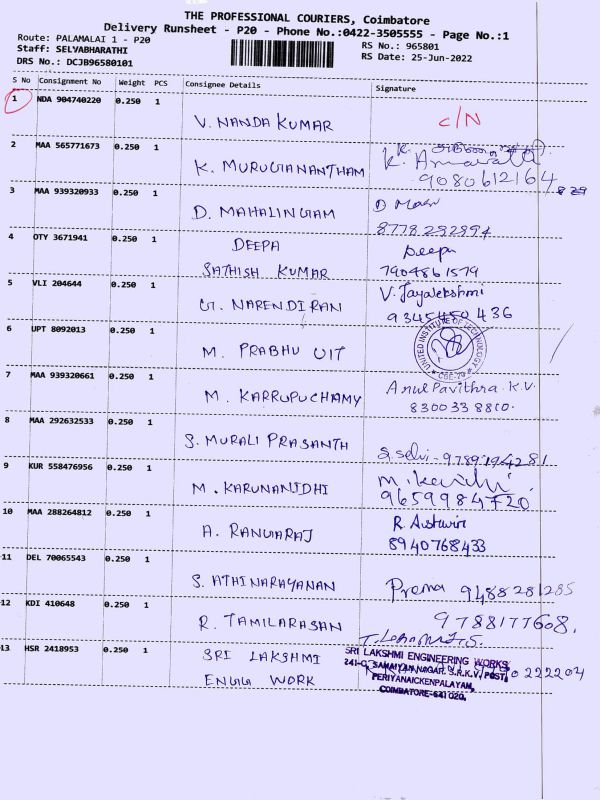 THE PROFESSIONAL COURIERS, Coimbatore
Delivery Runsheet - P20 - Phone No.:0422-3505555 - Page No.:1
Route: PALAMALAI 1 - P20
RS No.: 965801
Staff: SELVABHARATHI
RS Date: 25-Jun-2022
DRS No.: DCJB96580101
S No Consignment No Weight PCS Consignee Details Signature
1 NDA 904740220 0.250 1
V. NANDA KUMAR C/N
2 MAA 565771673 0.250 1
K. MURUGANANTHAM 9080612164
3 MAA 939320933 0.250 1
D. MAHALINGAM
8778292894
4 OTY 3671941 0.250 1
DEEPA Deepa
SATHISH KUMAR 7904861579
5 VLI 204644 0.250 1
G. NARENDIRAN V. Jayalekshmi
9345450436
6 UPT 8092013 0.250 1
M. PRABHU UIT
UNITED INSTITUTE OF TECHNOLOGY
7 MAA 939320661 0.250 1
M. KARRUPUCHAMY Anul Pavithra. K.V.
8300338810.
8 MAA 292632533 0.250 1
S. MURALI PRASANTH S. Selvi - 9789194281
9 KUR 558476956 0.250 1
M. KARUNANIDHI
9659984720
10 MAA 288264812 0.250 1
A. RANGARAJ R. Aishwin
8940768433
11 DEL 70065543 0.250 1
S. ATHINARAYANAN Prema 9488281285
12 KDI 410648 0.250 1
R. TAMILARASAN 9788177608.
13 HSR 2418953 0.250 1
SRI LAKSHMI
ENGG WORK
SRI LAKSHMI ENGINEERING WORKS
241-C, SAMAIYAN NAGAR, S.R.K.V. POST,
PERIYANAICKENPALAYAM,
COIMBATORE-641 020.